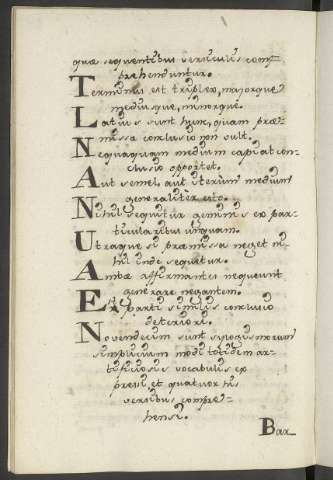 quæ sequentibus versiculis com-
prehenduntur.
Terminus est triplex, majorque
mediusque, minorque.
Latius sunt hunc, quam præ-
missa conclusio non vult.
Nequaquam medium capiat con-
clusio oportet.
Aut semel aut iterùm medium
generalitèr esto.
Nihil sequitur geminis ex par-
ticularibus unquam.
Utraque si præmissa neget ni-
hil inde sequetur.
Ambæ affirmantes nequeunt
generare negantem.
Est parti similis conclusio
deteriori.
Novendecim sunt sylogismorum
simplicium modi totidem ar-
tificiosis vocabulis ex
pressi et quatuor his
versibus compre-
hensi.
Bar